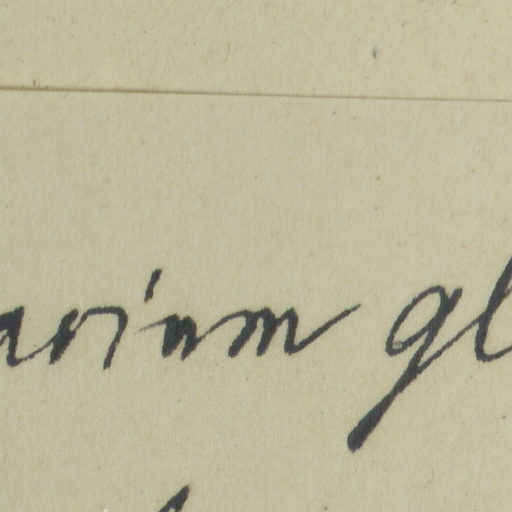 arium gl